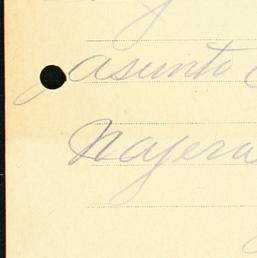 asunto
Najera